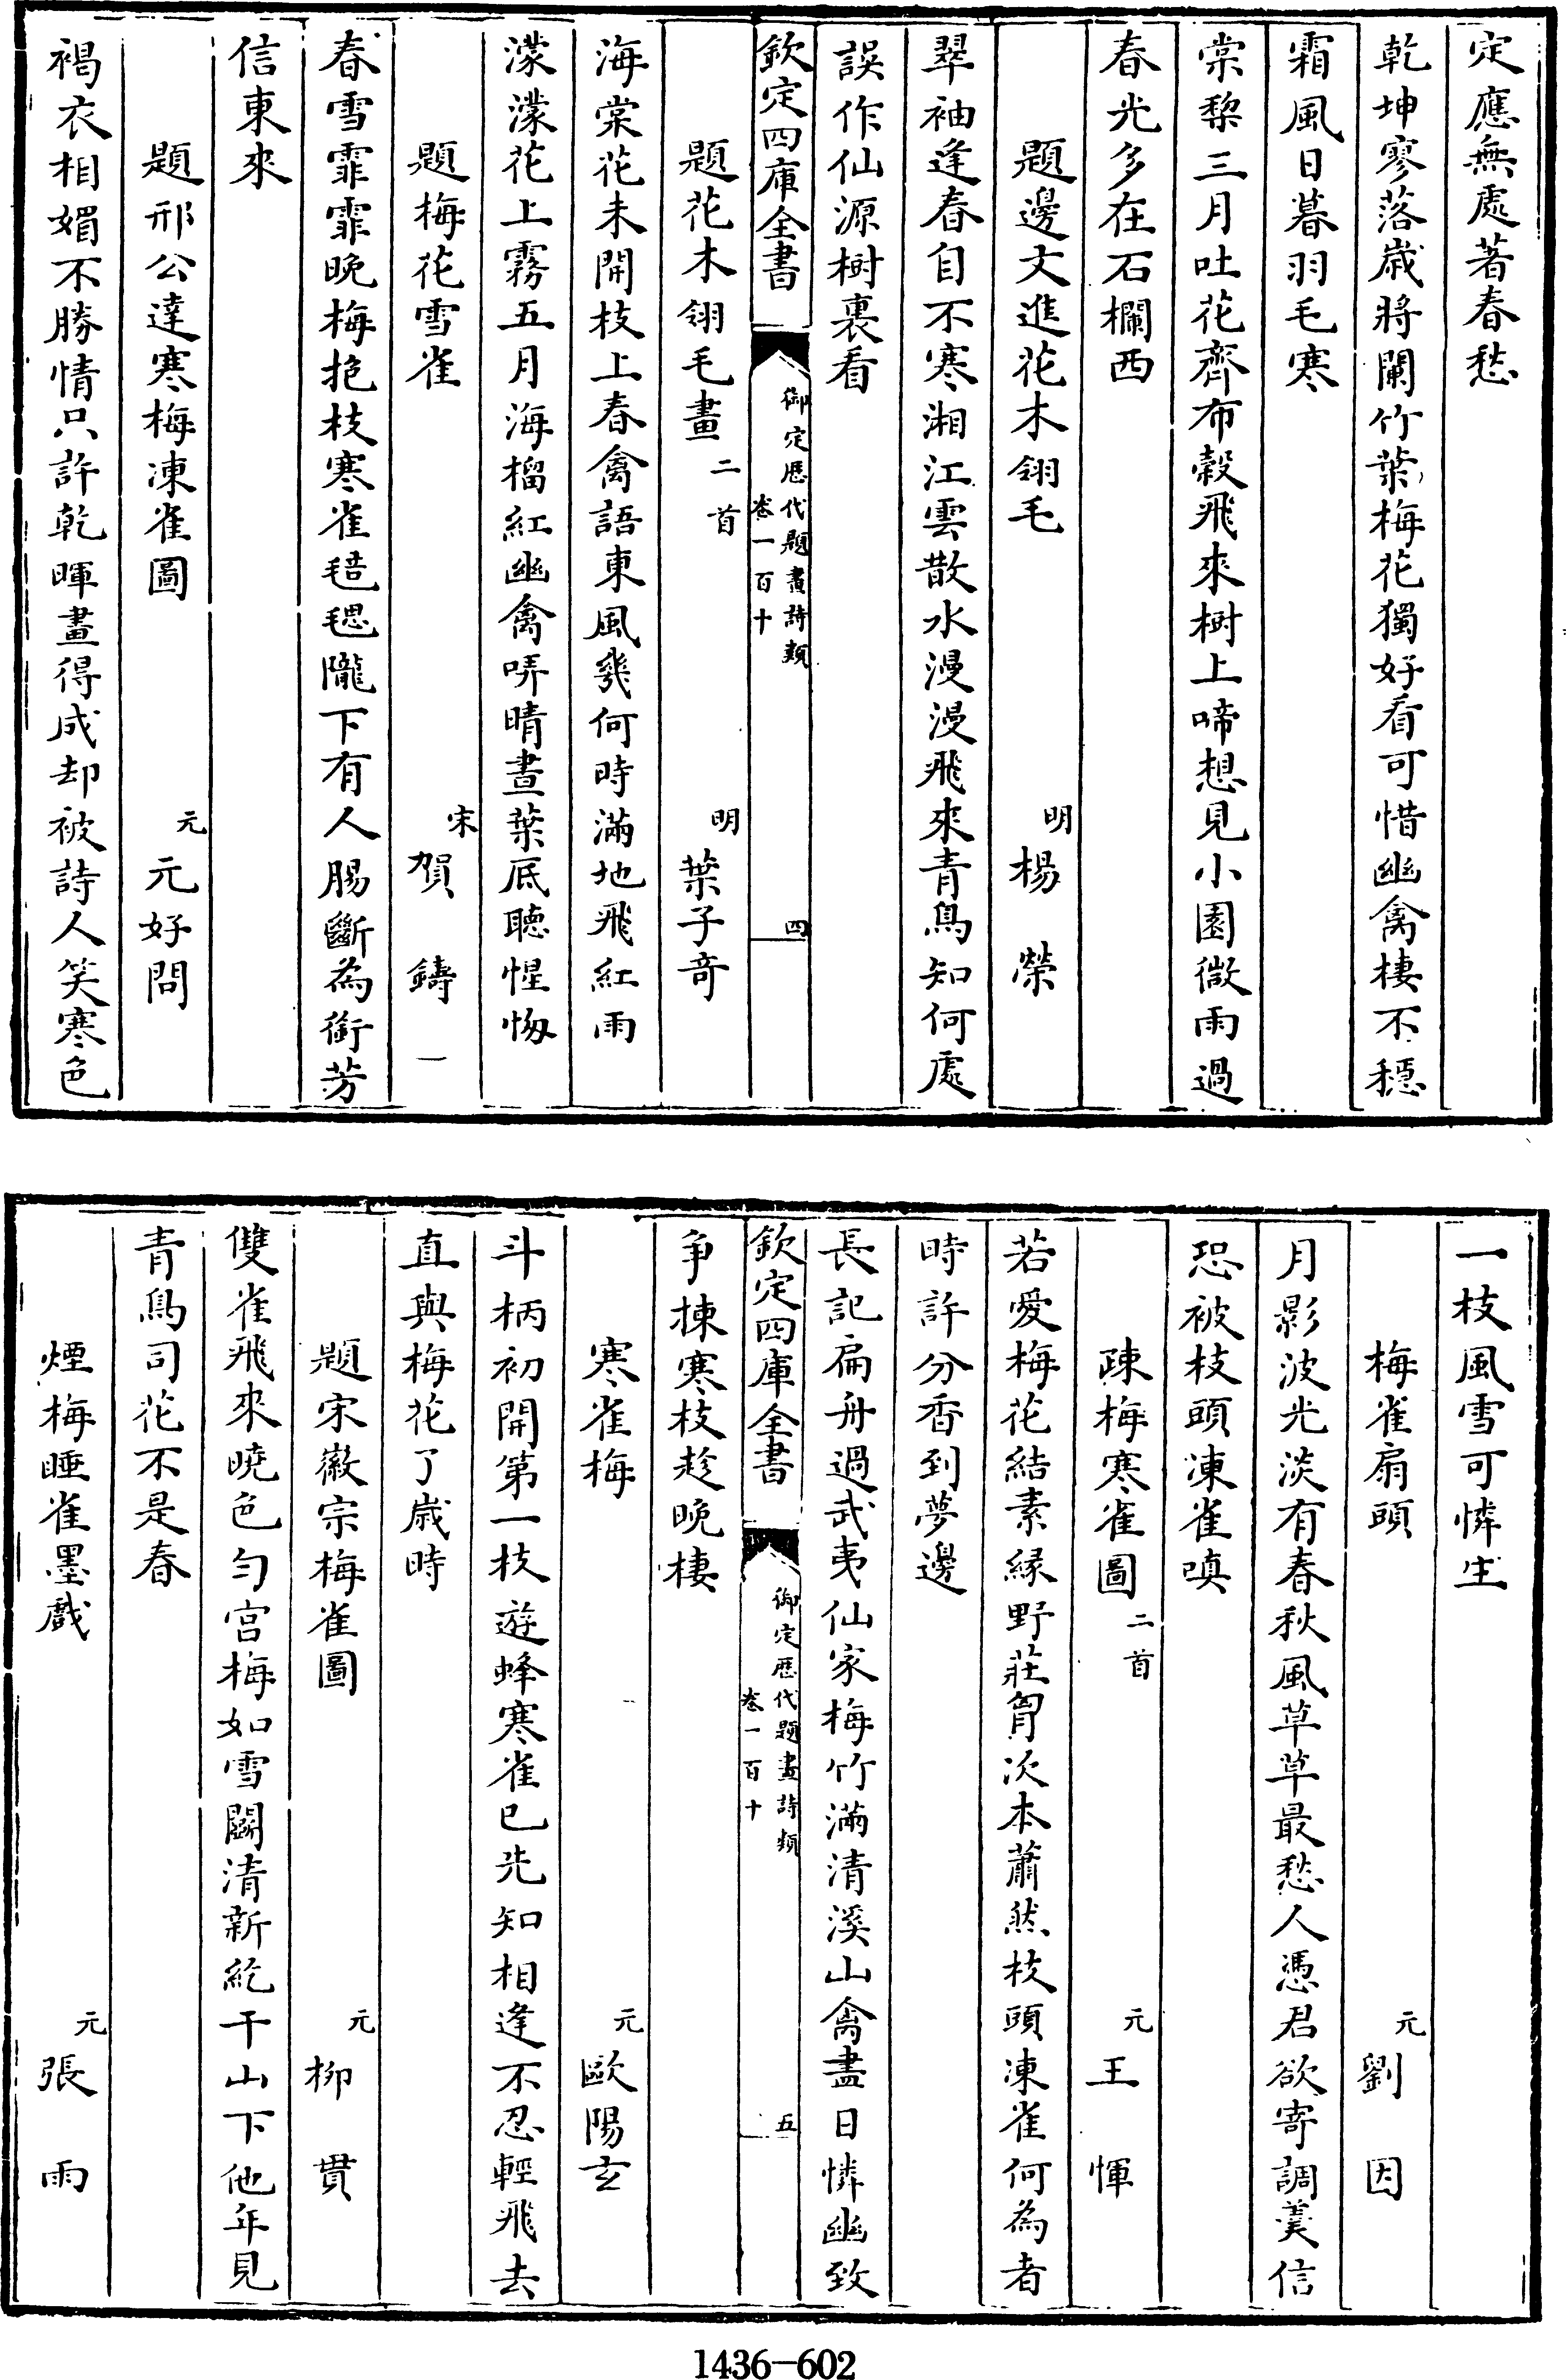 定應無處著春愁
乾坤寥落歲將闌竹葉梅花獨好看可惜幽禽棲不穩
霜風日暮羽毛寒
棠棃三月吐花齊布穀飛來樹上啼想見小園微雨過
春光多在石欄西
題邊文進花木翎毛 明楊榮
翠袖逢春自不寒湘江雲散水漫漫飛來青鳥知何處
誤作仙源樹裏看
欽定四庫全書 御定歷代題畫詩類 卷一百十 四
題花木翎毛畫二首 明葉子奇
海棠花未開枝上春禽語東風幾何時滿地飛紅雨
濛濛花上霧五月海榴紅幽禽哢晴晝葉底聽惺惚
題梅花雪雀 宋賀鑄一
春雪霏霏晚梅抱枝寒雀毰毸隴下有人腸斷為銜芳
信東來
題邢公達寒梅凍雀圖 元元好問
褐衣相媚不勝情只許乾暉畫得成却被詩人笑寒色
一枝風雪可憐生
梅雀扇頭 元劉因
月影波光淡有春秋風草草最愁人憑君欲寄調羹信
恐被枝頭凍雀嗔
疎梅寒雀圖二首 元王惲
若愛梅花結素緣野莊胷次本蕭然枝頭凍雀何為者
時許分香到夢邊
長記扁舟過武夷仙家梅竹滿清溪山禽盡日憐幽致
欽定四庫全書 御定歷代題畫詩類 卷一百十 五
爭揀寒枝趁晚棲
寒雀梅 元歐陽玄
斗柄初開第一枝遊蜂寒雀已先知相逢不忍輕飛去
直與梅花了歲時
題宋徽宗梅雀圖 元柳貫
雙雀飛來曉色勻宮梅如雪鬭清新紇干山下他年見
青鳥司花不是春
煙梅睡雀墨戲 元張雨
1436-602